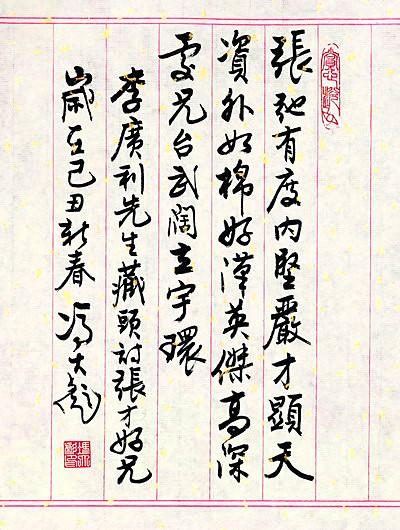 張弛有度內堅嚴才顯天
資外如棉好漢英傑高深
處兄台武闊立宇環
李廣利先生藏頭詩張才好兄
歲在己丑新春 馮大彪